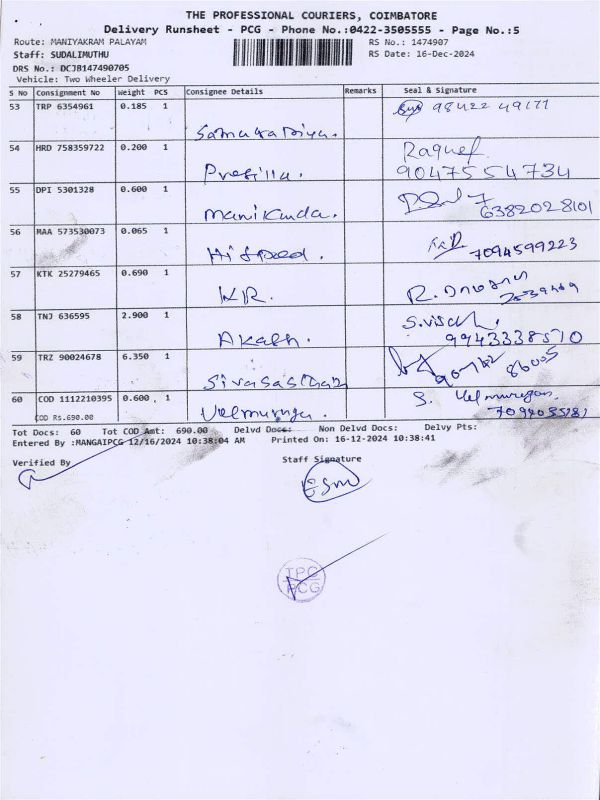 THE PROFESSIONAL COURIERS, COIMBATORE
Delivery Runsheet - PCG - Phone No.:0422-3505555 - Page No.:5
Route: MANIYAKRAM PALAYAM RS No.: 1474907
Staff: SUDALIMUTHU RS Date: 16-Dec-2024
DRS No.: DCJB147490705
Vehicle: Two Wheeler Delivery
S No Consignment No Weight PCS Consignee Details Remarks Seal & Signature
53 TRP 6354961 0.185 1
54 HRD 758359722 0.200 1 Raquef
Prefilla. 9047554734
55 DPI 5301328 0.600 1
Manikanda. 6382028101
56 MAA 573530073 0.065 1
Hi Speed. 7094599223
57 KTK 25279465 0.690 1
KR.
58 TNJ 636595 2.900 1
Akash. 9943338570
59 TRZ 90024678 6.350 1
60 COD 1112210395 0.600 1 S. Velmurugan
COD Rs.690.00 Velmuruga.
Tot Docs: 60 Tot COD Amt: 690.00 Delvd Docs: Non Delvd Docs: Delvy Pts:
Entered By :MANGAIPCG 12/16/2024 10:38:04 AM Printed On: 16-12-2024 10:38:41
Verified By Staff Signature
TPC
PCG